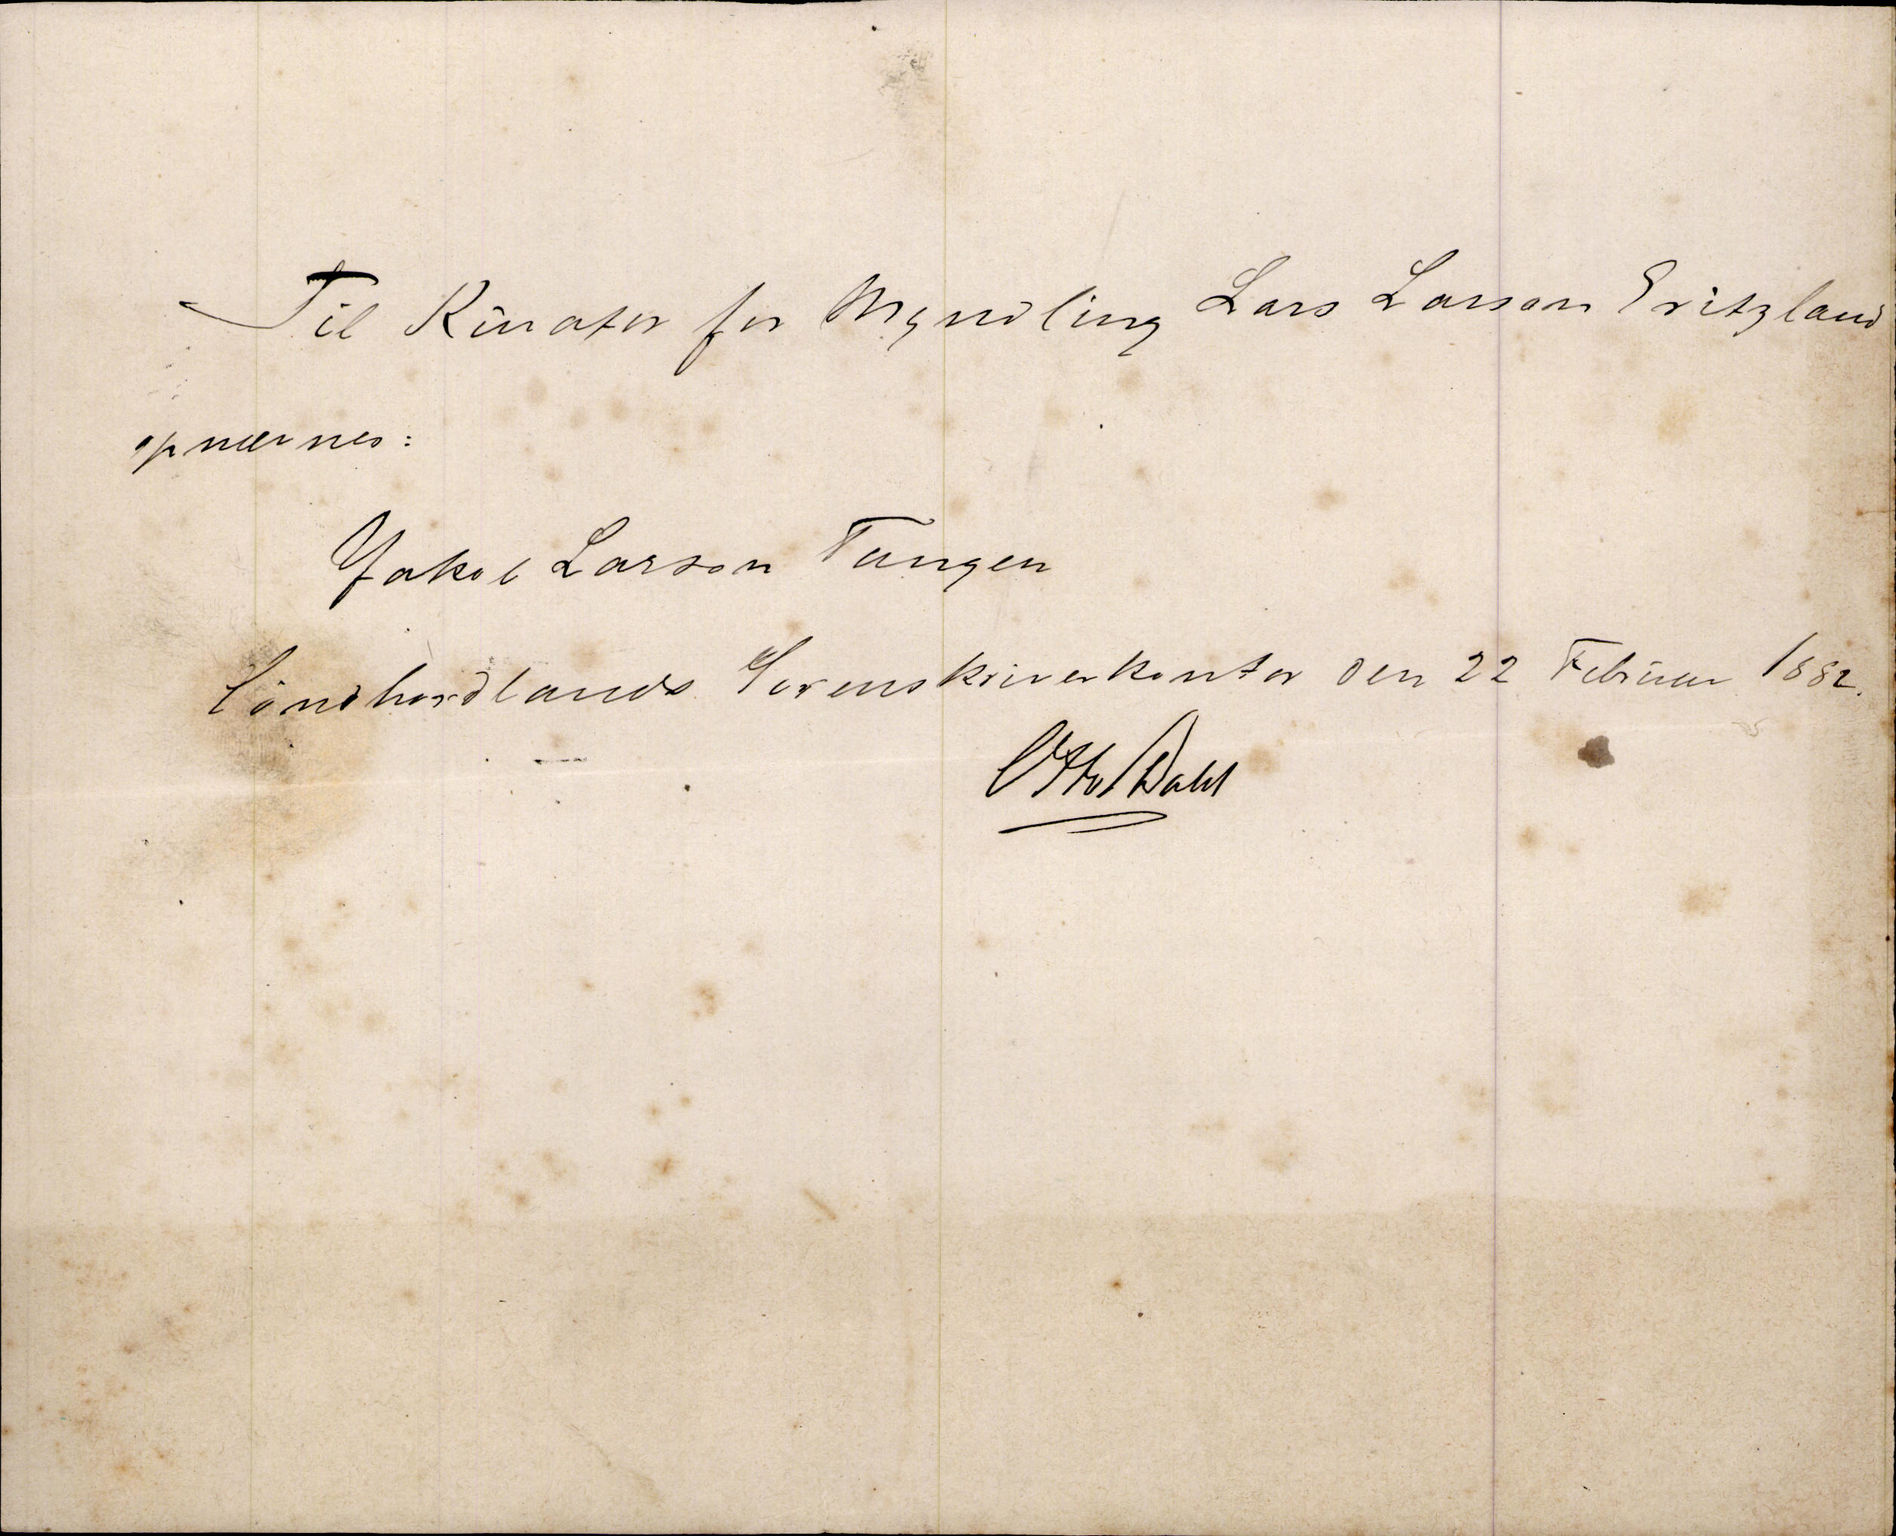 Til Kurator for Myndling Lars Larsen Eritzland
opnævnes:
Jakob Larsen Tangen
Søndhordlands Sorenskriverkontor den 22 Februar 1882.
Otto Dahl